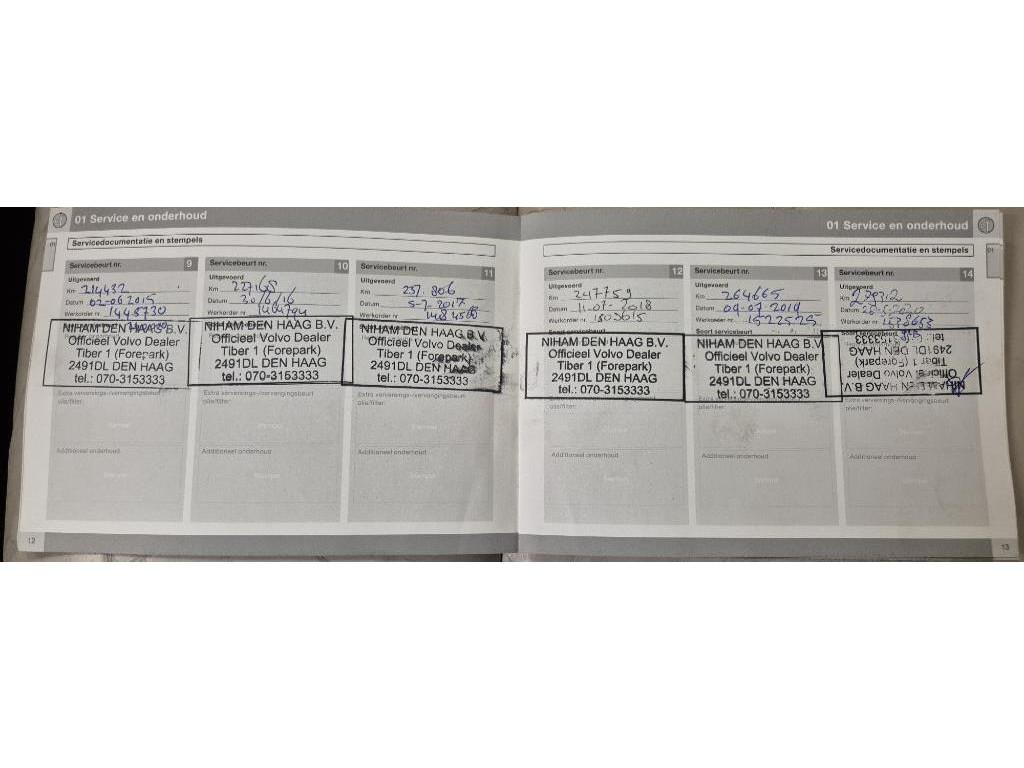 01 Service en onderhoud
Servicedocumentatie en stempels
Servicebeurt nr. 9
Uitgevoerd
Km 214432
Datum 02-06-2015
Werkorder nr. 1445730
NIHAM DEN HAAG B.V.
Officieel Volvo Dealer
Tiber 1 (Forepark)
2491DL DEN HAAG
tel.: 070-3153333
Extra verversings-/vervangingsbeurt
olie/filter:
Stempel
Additioneel onderhoud:
Stempel
Servicebeurt nr. 10
Uitgevoerd
Km
Datum 30/6/16
Werkorder nr.
NIHAM DEN HAAG B.V.
Officieel Volvo Dealer
Tiber 1 (Forepark)
2491DL DEN HAAG
tel.: 070-3153333
Extra verversings-/vervangingsbeurt
olie/filter:
Stempel
Additioneel onderhoud:
Stempel
Servicebeurt nr. 11
Uitgevoerd
Km 237.806
Datum 5-7-2017
Werkorder nr.
NIHAM DEN HAAG B.V.
Officieel Volvo Dealer
Tiber 1 (Forepark)
2491DL DEN HAAG
tel.: 070-3153333
Extra verversings-/vervangingsbeurt
olie/filter:
Stempel
Additioneel onderhoud:
Stempel
12
01 Service en onderhoud
01
Servicedocumentatie en stempels
Servicebeurt nr. 12
Uitgevoerd
Km 247759
Datum 11-07-2018
Werkorder nr. 1503615
Soort servicebeurt
NIHAM DEN HAAG B.V.
Officieel Volvo Dealer
Tiber 1 (Forepark)
2491DL DEN HAAG
tel.: 070-3153333
Extra verversings-/vervangingsbeurt
olie/filter:
Stempel
Additioneel onderhoud:
Stempel
Servicebeurt nr. 13
Uitgevoerd
Km 264665
Datum 09-07-2019
Werkorder nr. 1522525
Soort servicebeurt
NIHAM DEN HAAG B.V.
Officieel Volvo Dealer
Tiber 1 (Forepark)
2491DL DEN HAAG
tel.: 070-3153333
olie/filter:
Stempel
Additioneel onderhoud:
Stempel
Servicebeurt nr. 14
Uitgevoerd
Km
Datum
Werkorder nr.
Soort servicebeurt
NIHAM DEN HAAG B.V.
Officieel Volvo Dealer
Tiber 1 (Forepark)
2491DL DEN HAAG
tel.: 070-3153333
Extra verversings-/vervangingsbeurt
olie/filter:
Stempel
Additioneel onderhoud:
Stempel
13